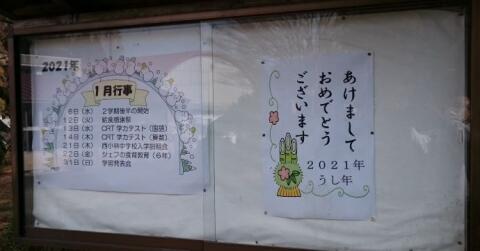 2021年
1月行事
6日（水） 2学期後半の開始
12日（火） 給食感謝祭
13日（水） CRT学力テスト（国語）
14日（木） CRT学力テスト（算数）
21日（木） 西小林中学校入学説明会
22日（金） シェフの食育教育（6年）
31日（日） 学習発表会
あけまして
おめでとう
ございます
2021年
うし年